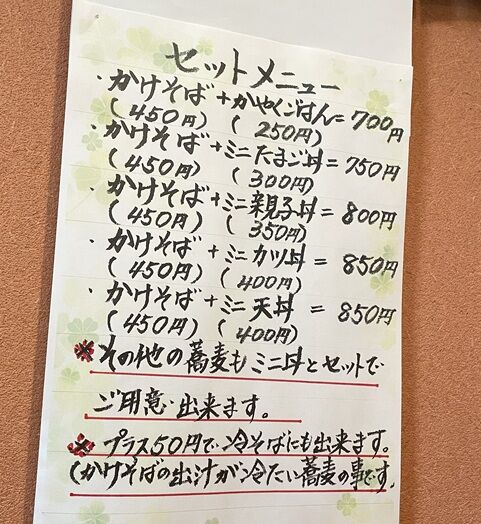 セットメニュー
・かけそば+かやくごはん=700円
(450円) (250円)
・かけそば+ミニたまご丼=750円
(450円) (300円)
・かけそば+ミニ親子丼=800円
(450円) (350円)
・かけそば+ミニカツ丼=850円
(450円) (400円)
・かけそば+ミニ天丼=850円
(450円) (400円)
※その他の蕎麦もミニ丼とセットで
ご用意出来ます。
※プラス50円で冷そばにも出来ます。
(かけそばの出汁が冷たい蕎麦の事です)